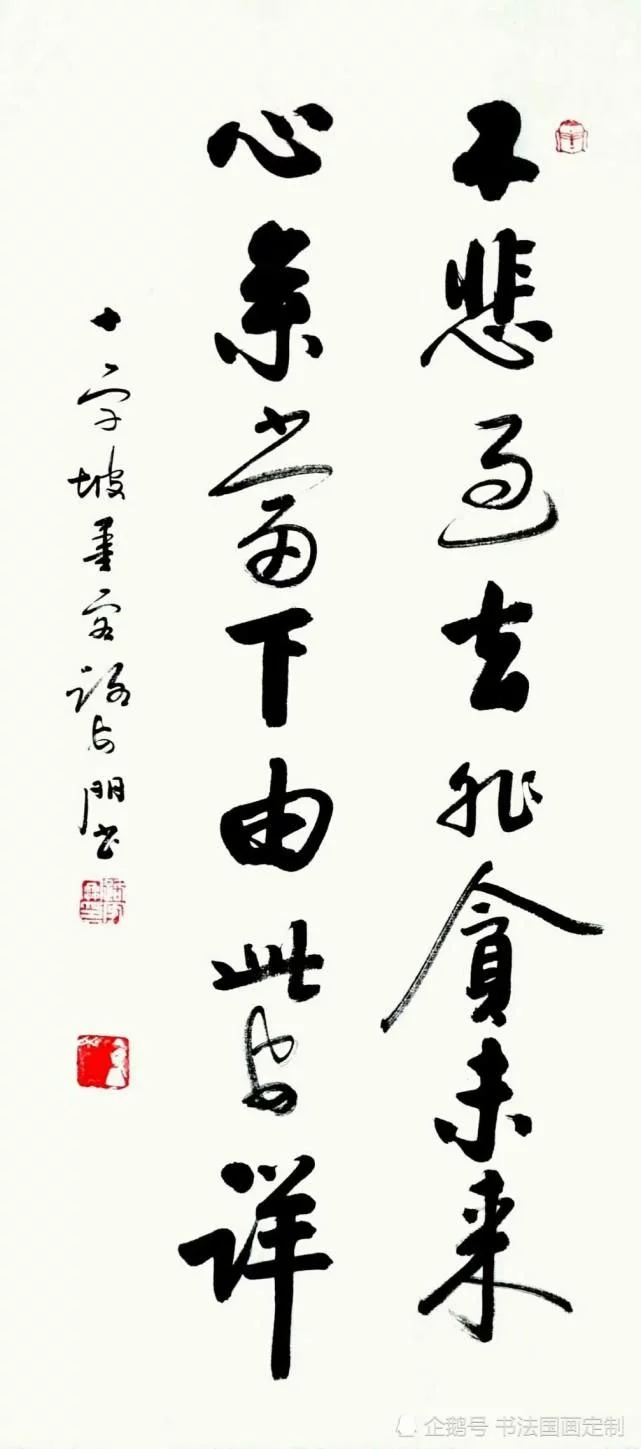 不悲过去非贪未来
心系当下由此安详
十字坡墨客路安朋书
企鹅号 书法国画定制